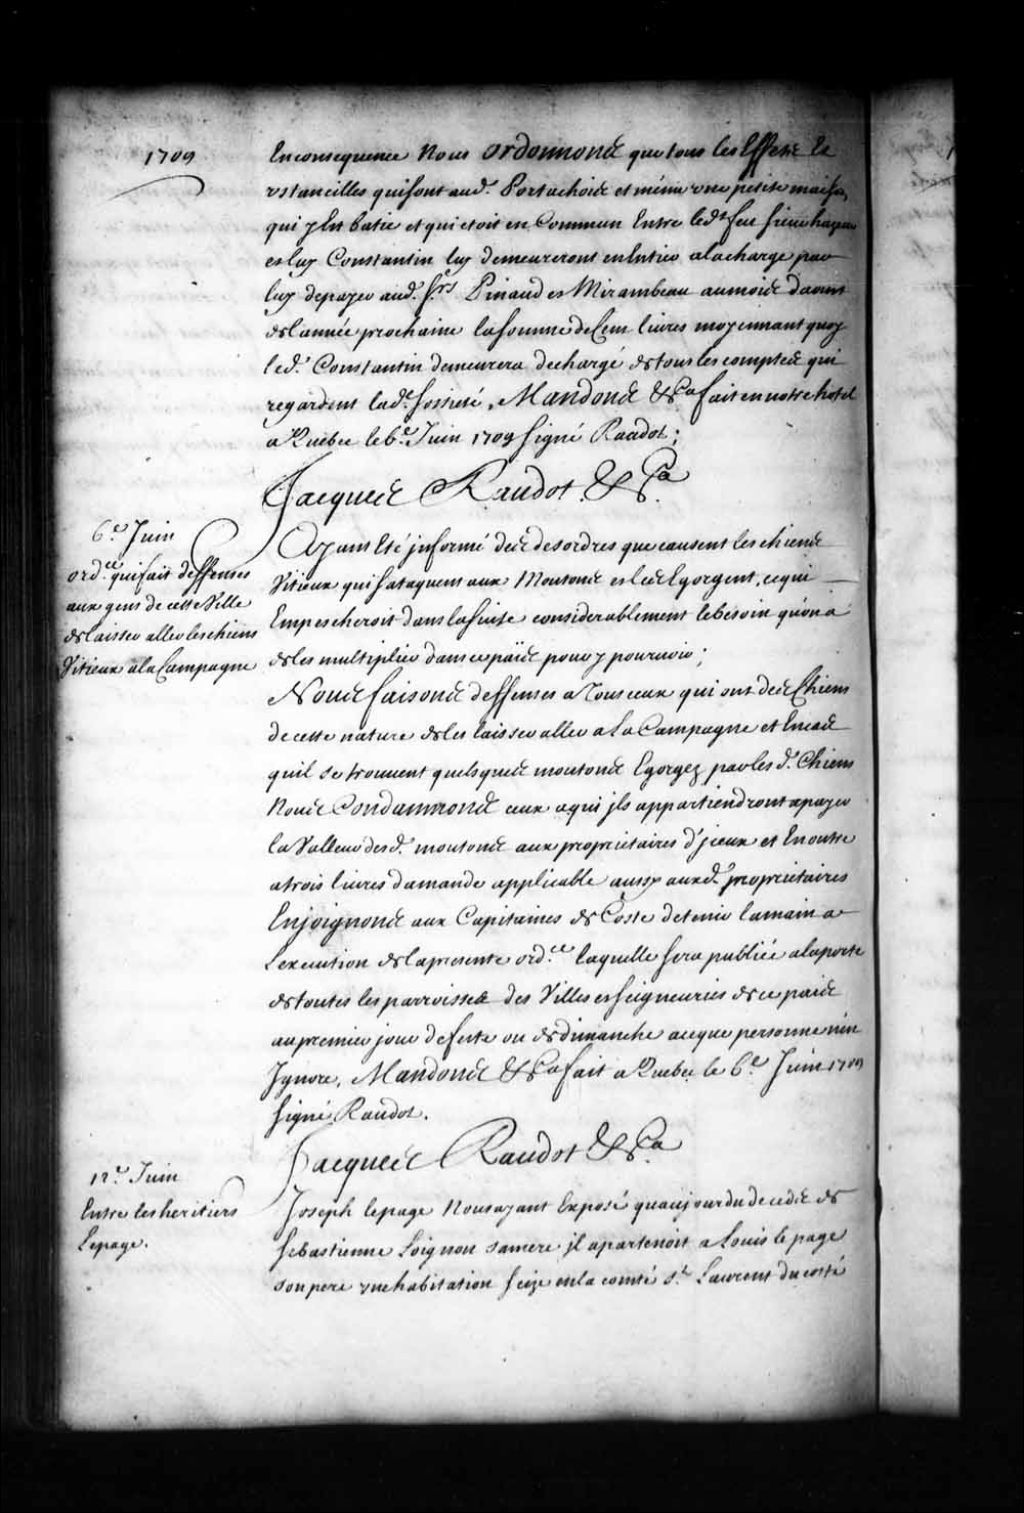 1709
En consequence Nous ordonnons que tous les Effets Et
vstancilles qui sont aud. Portachoix et même vne petite maison
qui y est batie et qui etoit en Commun Entre led. feu sieur
et luy Constantin luy demeureront en Entier a la charge par
luy de payer aud. Srs Pinaud et Mirambeau au mois daoust
de l'année prochaine la somme de Cent livres moyennant quoy
led. Constantin demeurera dechargé de tous les comptes qui
regardent lad. Societé, Mandons &ca fait en notre hotel
a Quebec le 6e. Juin 1709 signé Raudot;
Jacques Raudot &Ca.
6e. Juin
ord.ce qui fait deffenses
aux gens de cette Ville
de laisser aller les chiens
Vitieux a la Campagne
Ayant Eté jnformé des desordres que causent les chiens
Vitieux qui sataquent aux Moutons et les Egorgent, ce qui
Empescheroit dans la suite considerablement le besoin qu'on a
de les multiplier dans ce païs pour y pourvoir;
Nous faisons deffenses a Tous ceux qui ont des Chiens
de cette nature de les laisser aller a La Campagne et En cas
quil se trouvent quelques moutons Egorgez par les d. Chiens
Nous Condamnons ceux a qui jls appartiendront a payer
la Valleur desd. moutons aux proprietaires d'jceux et En outre
a trois livres damande applicable aussy auxd. proprietaires
Enjoignons aux Capitaines de Coste de tenir la main a
Lexecution de la presente ord.ce laquelle sera publiée a la porte
de toutes les parroisses des Villes et seigneuries de ce païs
au premier jour de feste ou de dimanche a ce que personne n'en
Jgnore, Mandons &Ca fait a Quebec le 6e. Juin 1709
signé Raudot.
Jacques Raudot &Ca
12e. Juin
Entre les heritiers
Lepage.
Joseph lepage Nous ayant Exposé qu'aujour du decedes de
sebastienne Loignon sa mere jl apartenoit a Louis le page
son pere vne habitation seize en la comté St. Laurent du costé